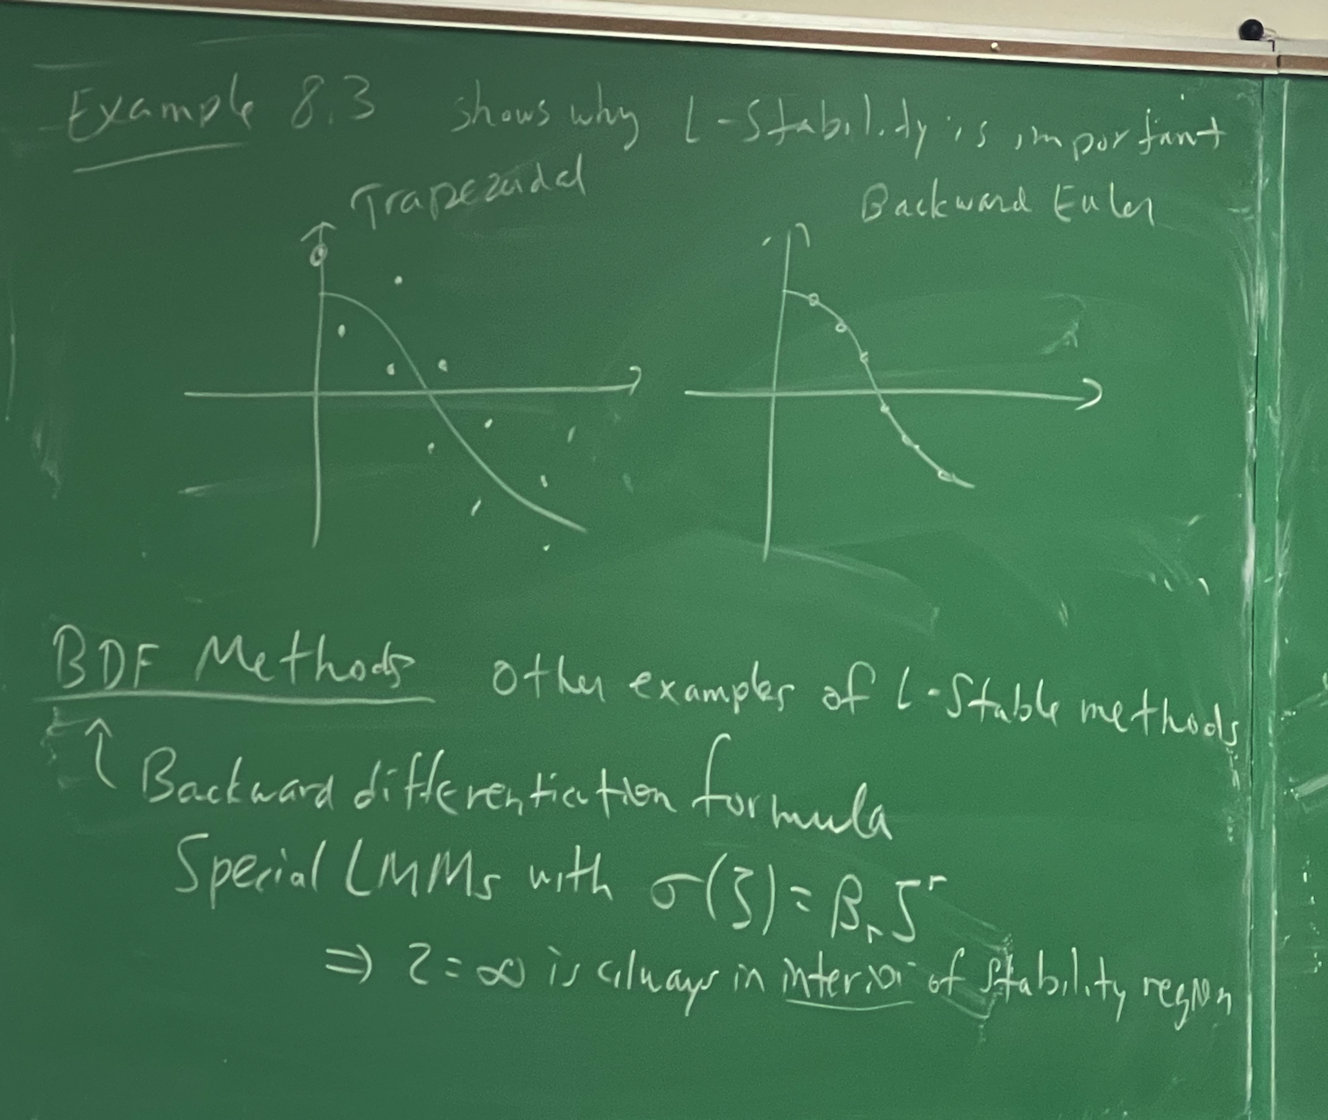 Example 8.3 shows why L-Stability is important
Trapezoidal
Backward Euler
BDF Methods other examples of L-Stable methods
↑ Backward differentiation formula
Special LMMs with σ(ζ) = βᵣ ζʳ
⇒ z = ∞ is always in interior of stability region